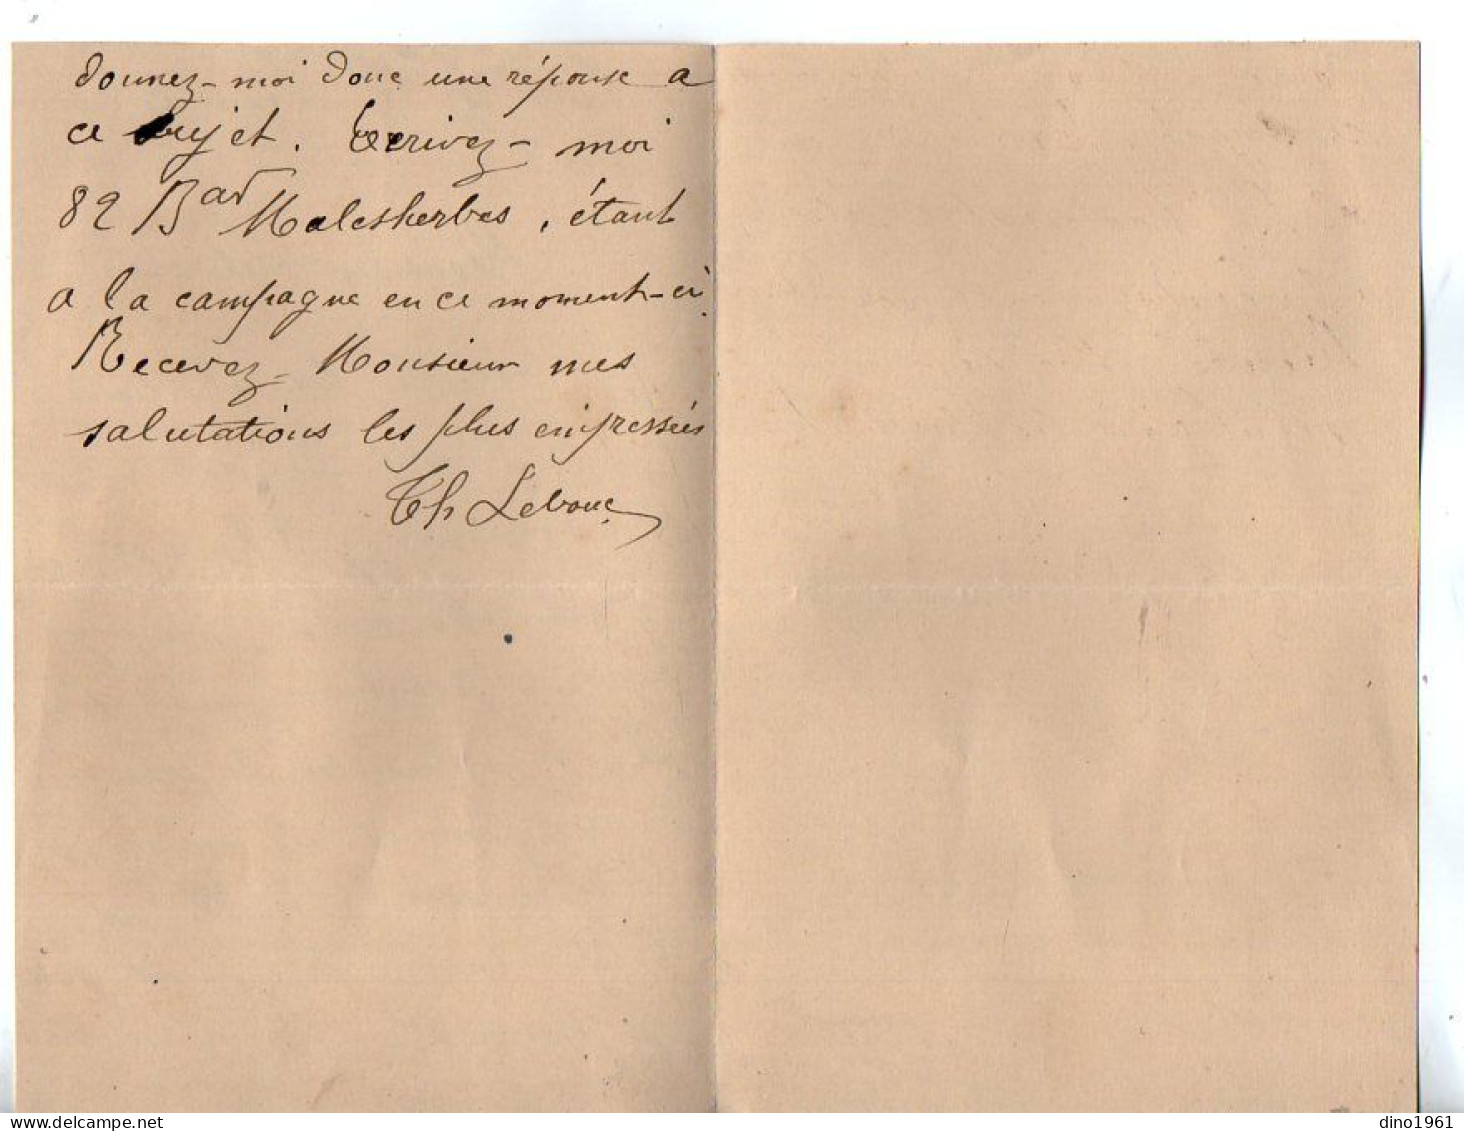 donnez-moi donc une réponse a
ce sujet. Ecrivez-moi
82 Bard Malesherbes, étant
a la campagne en ce moment-ci.
Recevez Monsieur mes
salutations les plus empressées
Th Lebouc
dino1961